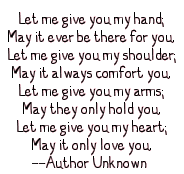 Let me give you my hand;
May it ever be there for you.
Let me give you my shoulder;
May it always comfort you.
Let me give you my arms;
May they only hold you.
Let me give you my heart;
May it only love you.
--Author Unknown